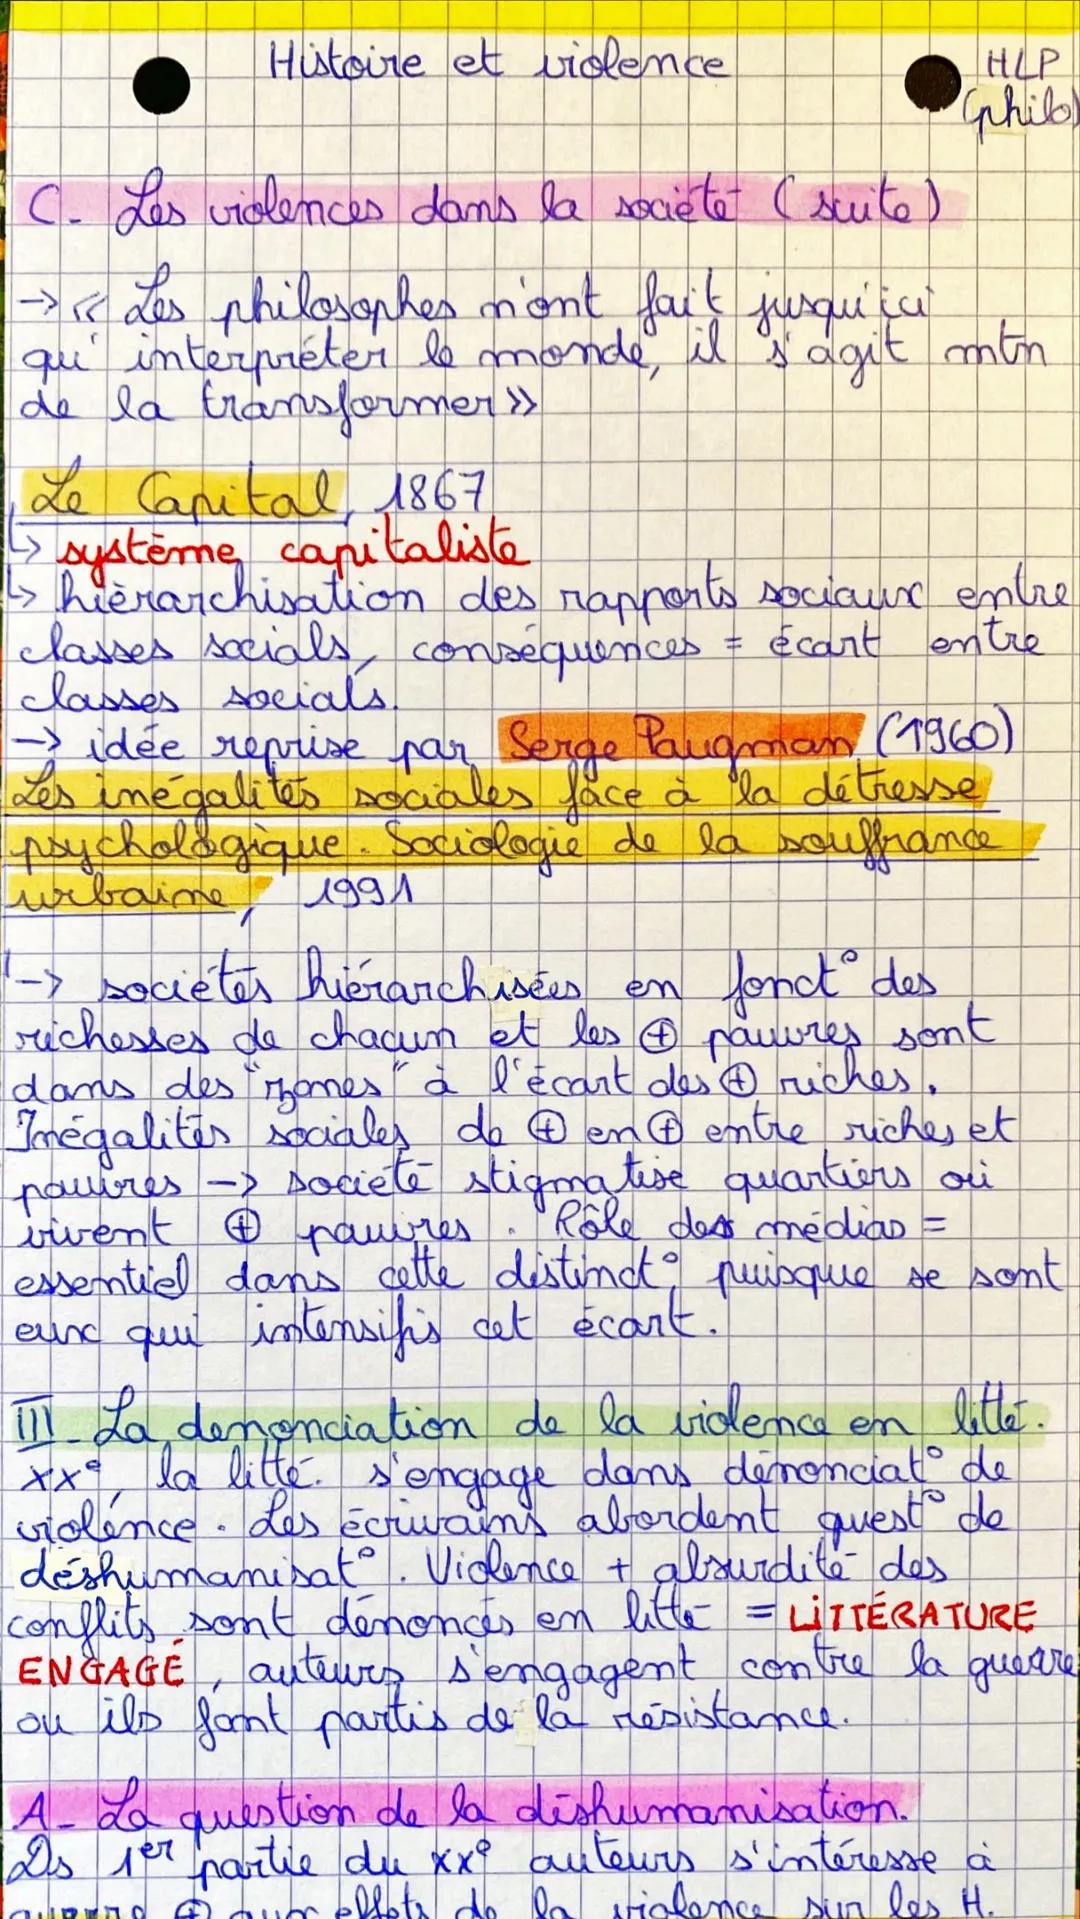 Histoire et violence
HLP
(philo)
C- Les violences dans la société (suite)
→ « Les philosophes n'ont fait jusqu'ici
qu'interpréter le monde, il s'agit mtn
de la transformer »
Le Capital, 1867
↳ système capitaliste
↳ hiérarchisation des rapports sociaux entre
classes socials, conséquences = écart entre
classes socials.
→ idée reprise par Serge Paugman (1960)
Les inégalités sociales face à la détresse
psychologique. Sociologie de la souffrance
urbaine, 1991
→ sociétés hiérarchisées en fonct° des
richesses de chacun et les ⊕ pauvres sont
dans des "zones" à l'écart des ⊕ riches.
Inégalités sociales de ⊕ en ⊕ entre riches et
pauvres → société stigmatise quartiers où
vivent ⊕ pauvres. Rôle des médias =
essentiel dans cette distinct° puisque se sont
eux qui intensifis cet écart.
III- La denonciation de la violence en litté.
XXe, la litté. s'engage dans dénonciat° de
violence. Les écrivains abordent quest° de
déshumanisat°. Violence + absurdité des
conflits sont dénoncés en litté = LITTÉRATURE
ENGAGÉ, auteurs s'engagent contre la guerre
ou ils font partis de la résistance.
A- La question de la déshumanisation.
Ds 1er partie du XXe auteurs s'intéresse à
guerre ⊕ aux effets de la violence sur les H.